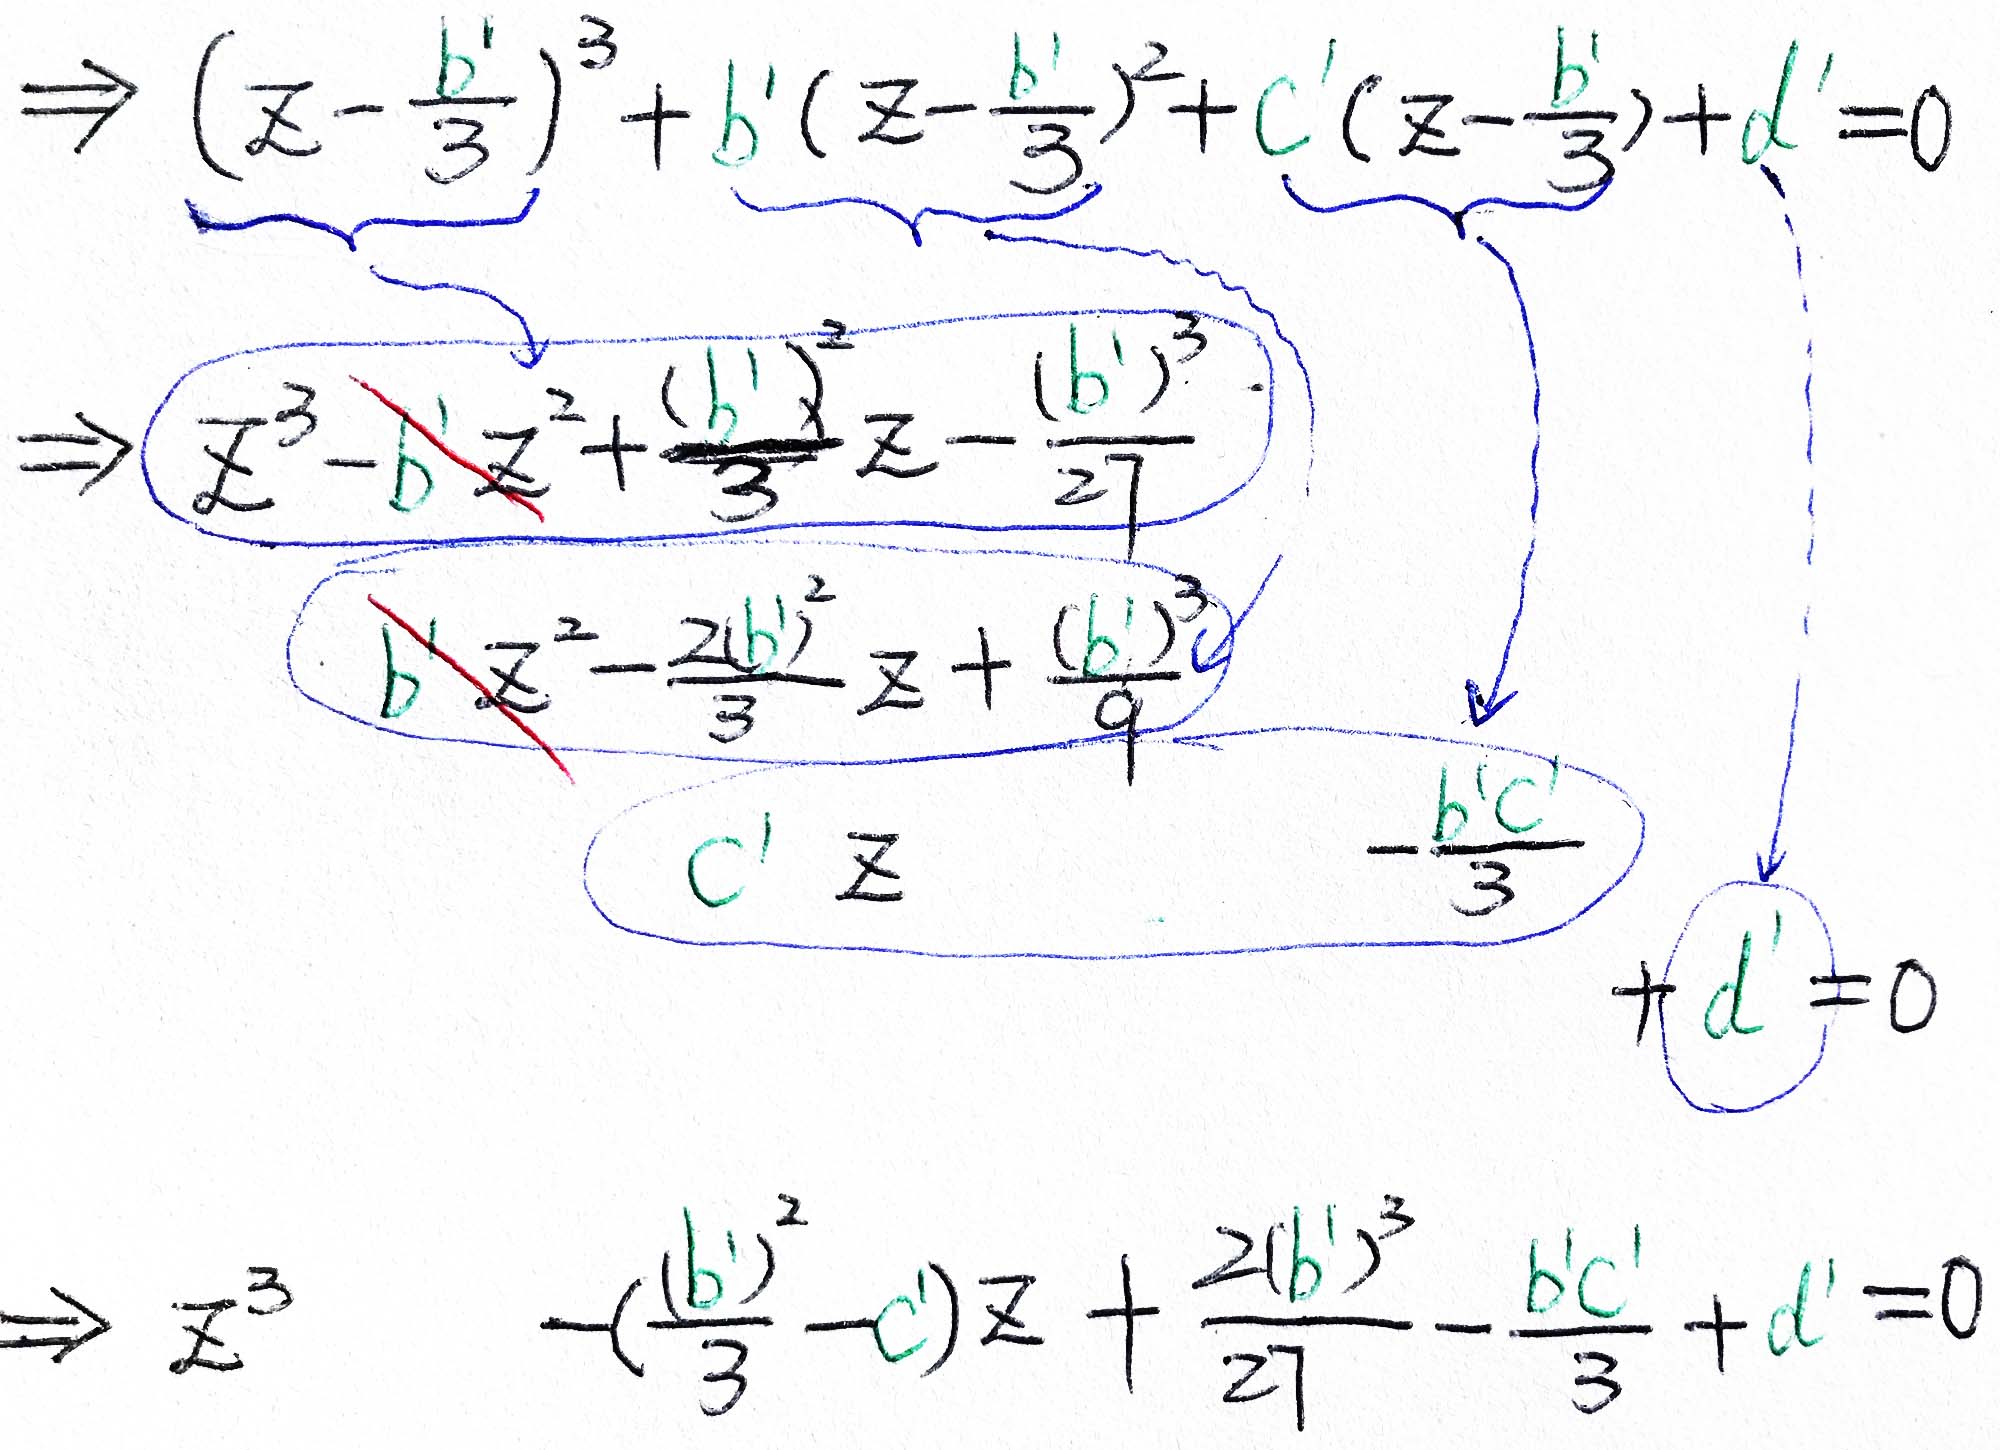 ⇒ (z - b'/3)³ + b'(z - b'/3)² + c'(z - b'/3) + d' = 0
⇒ z³ - b'z² + (b')²/3 z - (b')³/27
b'z² - 2(b')²/3 z + (b')³/9
c'z - b'c'/3
+ d' = 0
⇒ z³ - ((b')²/3 - c')z + 2(b')³/27 - b'c'/3 + d' = 0